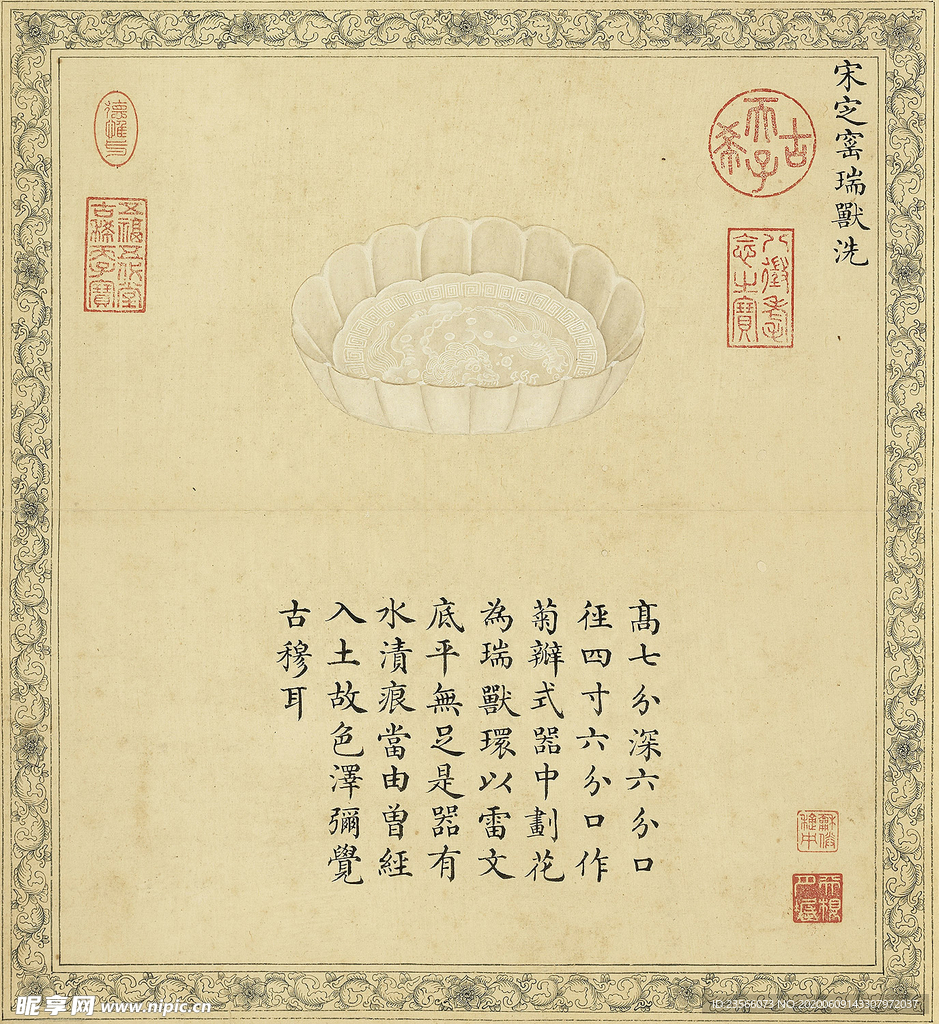 宋定窰瑞獸洗
古希天子
八徵耄念之寶
高七分深六分口
徑四寸六分口作
菊瓣式器中劃花
為瑞獸環以雷文
底平無足是器有
水漬痕當由曽經
入土故色澤彌覺
古穆耳
德惟馨
五福五代堂古稀天子寶
昵享网 www.nipic.cn
ID:23566073 NO:20200609143307972037